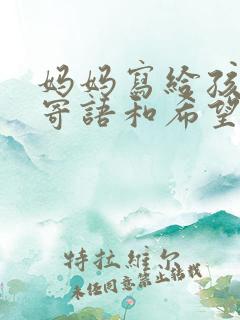 妈妈寫給孩
寄語和希望
特拉維尔
未经同意禁止转载